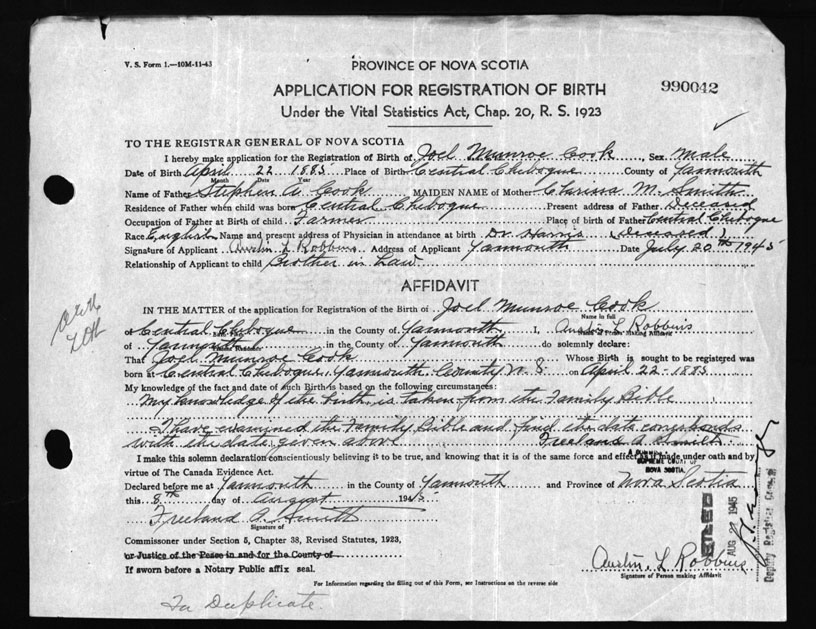 V. S. Form 1.—10M-11-43
PROVINCE OF NOVA SCOTIA
APPLICATION FOR REGISTRATION OF BIRTH
990042
Under the Vital Statistics Act, Chap. 20, R. S. 1923
TO THE REGISTRAR GENERAL OF NOVA SCOTIA
I hereby make application for the Registration of Birth of Joel Munroe Cook, Sex Male
Date of Birth April 22 1885 Place of Birth Central Chebogue County of Yarmouth
Month Date Year
Name of Father Stephen A. Cook MAIDEN NAME of Mother M. Smith
Residence of Father when child was born Central Chebogue Present address of Father Deceased
Occupation of Father at Birth of child Farmer Place of birth of Father Central Chebogue
Race English Name and present address of Physician in attendance at birth Dr Harris (deceased)
Signature of Applicant Austin L Robbins Address of Applicant Yarmouth Date July 20th 1945
Relationship of Applicant to child Brother in Law
AFFIDAVIT
IN THE MATTER of the application for Registration of the Birth of Joel Munroe Cook
Name in full
of Central Chebogue in the County of Yarmouth I, Austin L Robbins
of Yarmouth in the County of Yarmouth do solemnly declare:
That Joel Munroe Cook Whose Birth is sought to be registered was
born at Central Chebogue, Yarmouth County N. S on April 22-1885
My knowledge of the fact and date of such Birth is based on the following circumstances:
My knowledge of the birth is taken from the Family Bible
I have examined the Family Bible and find the date corresponds
with the date given above Freeland A Smith.
I make this solemn declaration conscientiously believing it to be true, and knowing that it is of the same force and effect as if made under oath and by
SUPREME COURT OF
NOVA SCOTIA.
virtue of The Canada Evidence Act.
Declared before me at Yarmouth in the County of Yarmouth and Province of Nova Scotia
this 8th day of August 1945
Freeland A. Smith
Signature of
Commissioner under Section 5, Chapter 38, Revised Statutes, 1923,
or Justice of the Peace in and for the County of
If sworn before a Notary Public affix seal.
Austin L Robbins
Signature of Person making Affidavit
For Information regarding the filling out of this Form, see Instructions on the reverse side
In Duplicate.
FILED
Deputy Registrar General